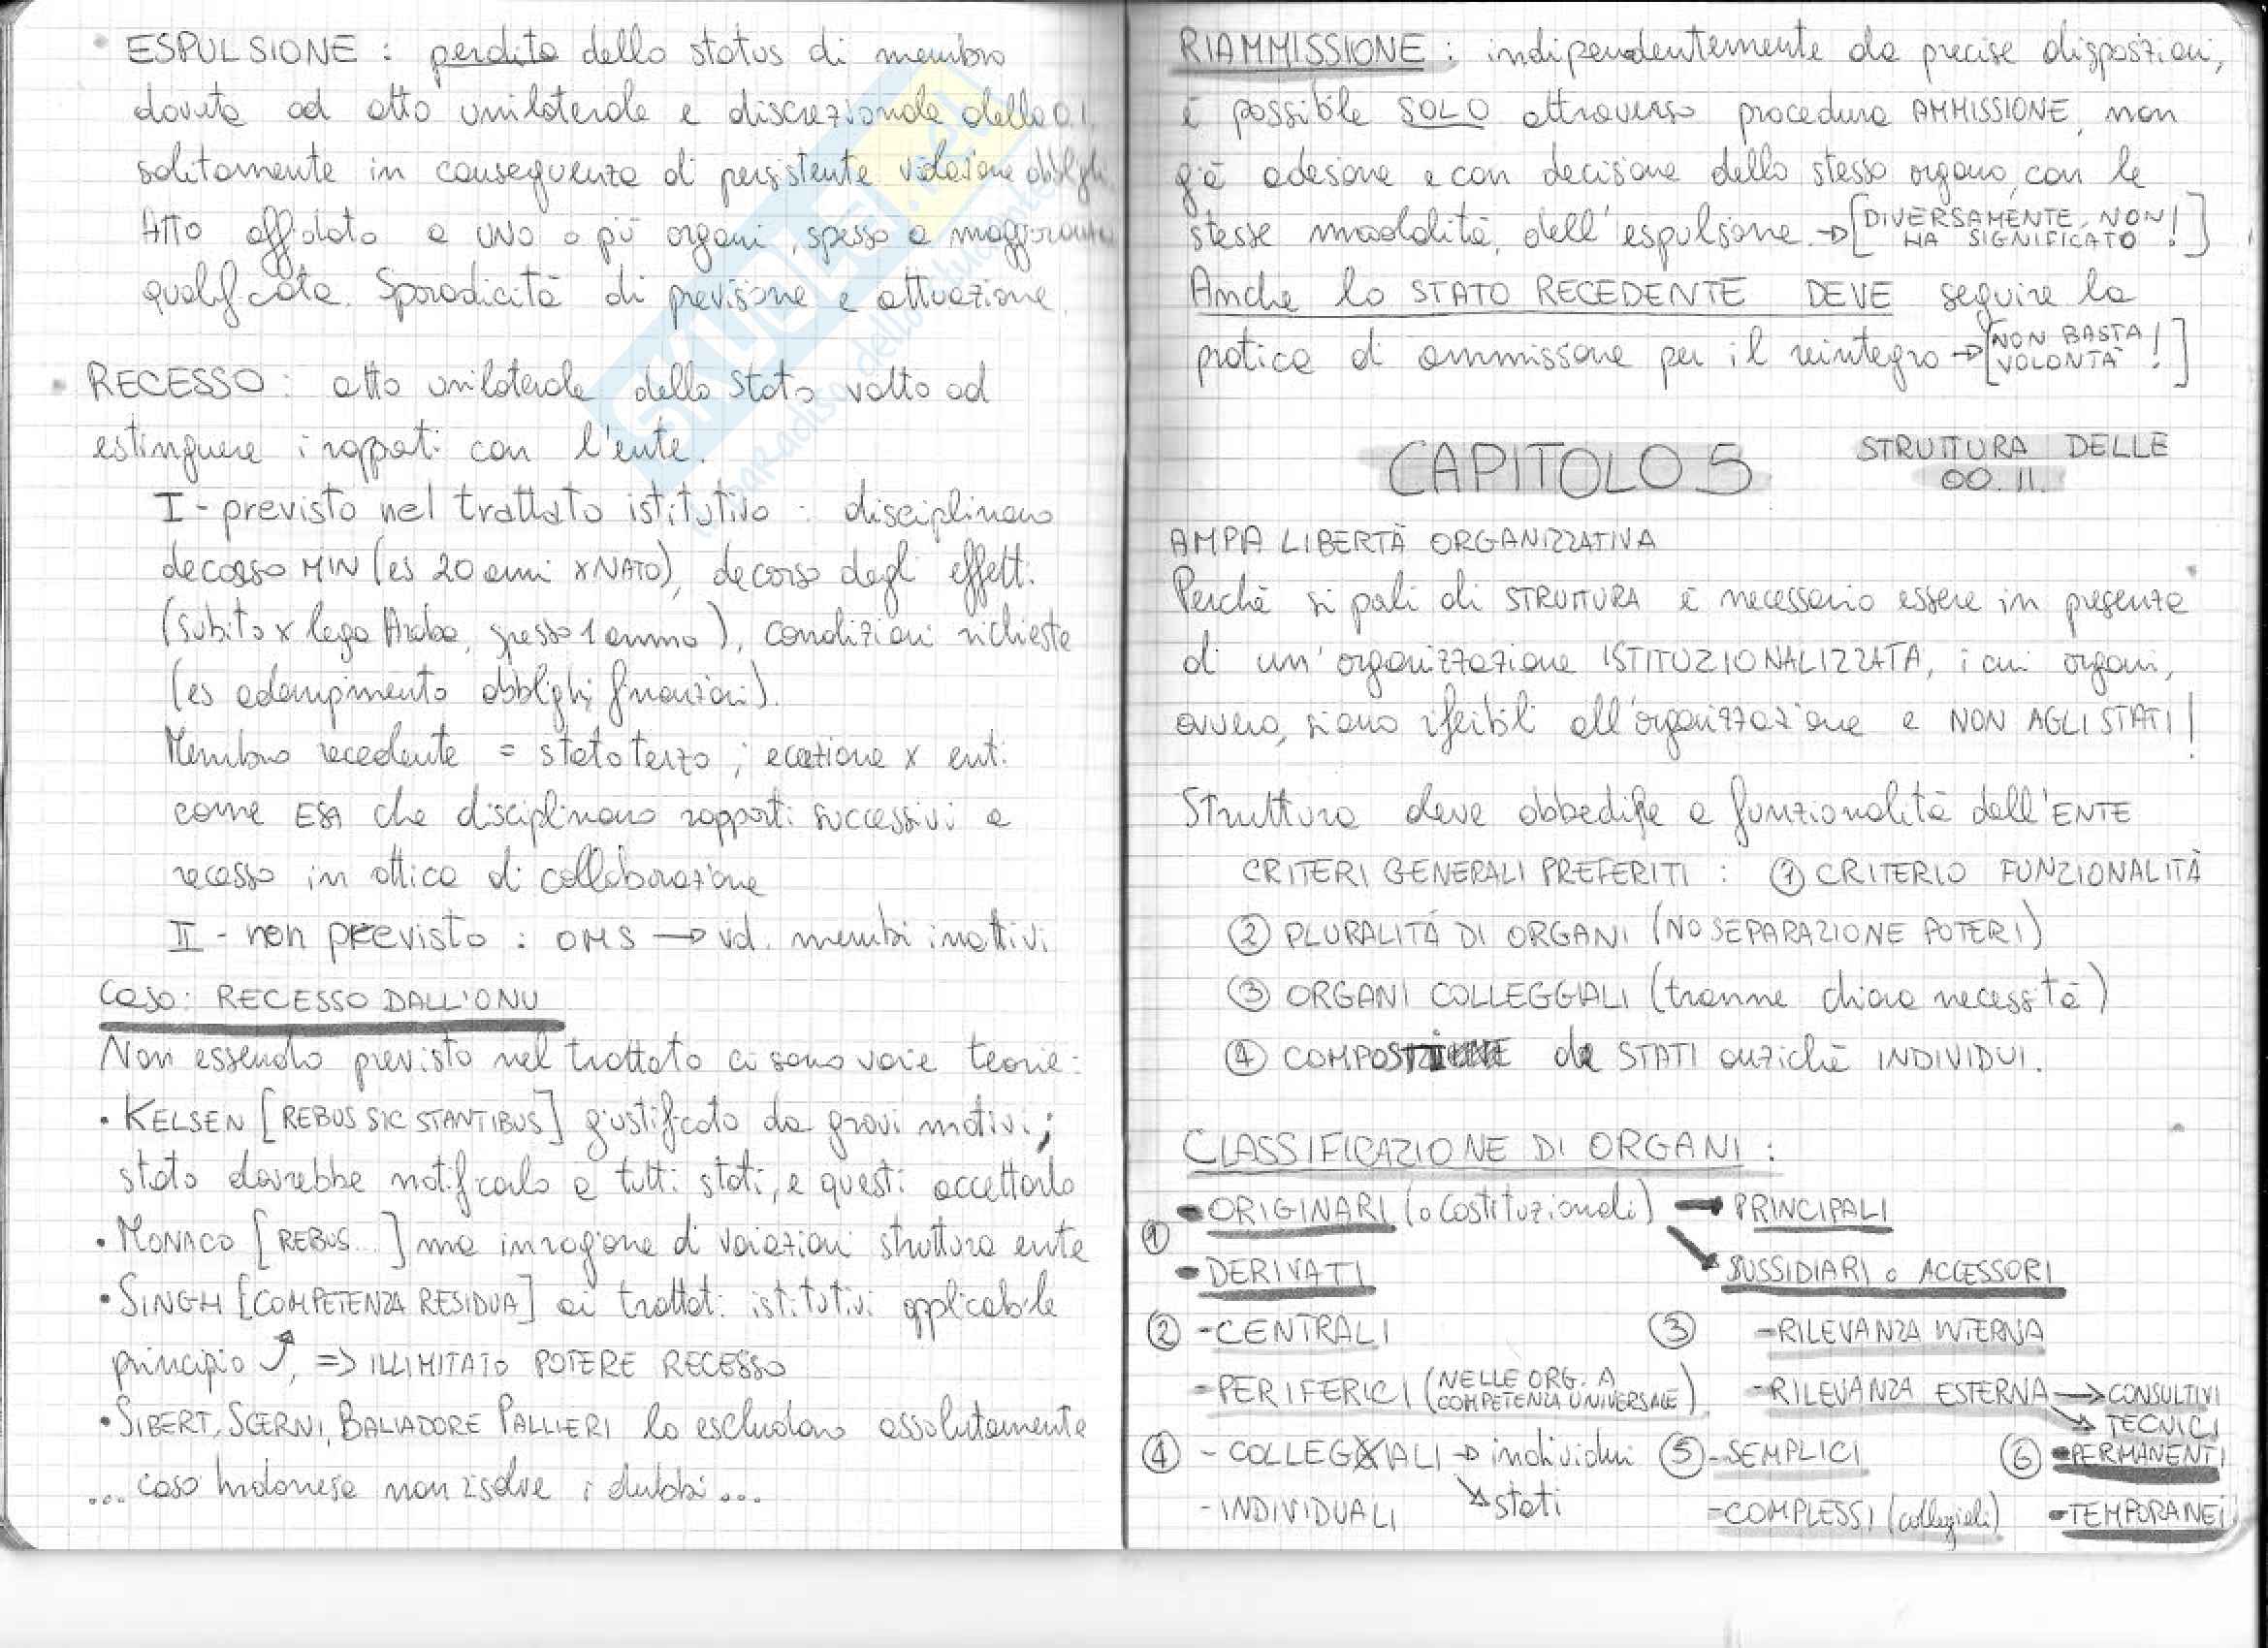 • ESPULSIONE : perdita dello status di membro
dovuta ad atto unilaterale e discrezionale della O.I.
solitamente in conseguenza di persistente violazione obblighi.
Atto affidato a UNO o più organi, spesso a maggioranza
qualificata. Sporadicità di previsione e attuazione.
• RECESSO : atto unilaterale dello Stato volto ad
estinguere i rapporti con l'ente.
I - previsto nel trattato istitutivo : disciplinano
decorso MIN (es 20 anni x NATO), decorso degli effetti
(subito x lega Araba, spesso 1 anno), condizioni richieste
(es adempimento obblighi finanziari).
Membro recedente = stato terzo ; eccezione x enti
come ESA che disciplinano rapporti successivi a
recesso in ottica di collaborazione
II - non previsto : OMS → vd. membri inattivi
Caso: RECESSO DALL'ONU
Non essendo previsto nel trattato ci sono varie teorie:
• KELSEN [REBUS SIC STANTIBUS] giustificato da gravi motivi;
stato dovrebbe notificarlo a tutti stati, e questi accettarlo
• MONACO [REBUS...] ma in ragione di variazioni struttura ente
• SINGH [COMPETENZA RESIDUA] ai trattati istitutivi applicabile
principio ↑, => ILLIMITATO POTERE RECESSO
• SIBERT, SCERNI, BALLADORE PALLIERI lo escludono assolutamente
... caso Indonesia non risolve i dubbi ...
RIAMMISSIONE : indipendentemente da precise disposizioni,
è possibile SOLO attraverso procedura AMMISSIONE, non
già adesione e con decisione dello stesso organo, con le
stesse modalità, dell'espulsione → [DIVERSAMENTE, NON
HA SIGNIFICATO !]
Anche lo STATO RECEDENTE DEVE seguire la
pratica di ammissione per il reintegro → [NON BASTA
VOLONTÀ !]
CAPITOLO 5
STRUTTURA DELLE
OO. II.
AMPIA LIBERTÀ ORGANIZZATIVA
Perché si parli di STRUTTURA è necessario essere in presenza
di un'organizzazione ISTITUZIONALIZZATA, i cui organi,
ovvero, siano riferibili all'organizzazione e NON AGLI STATI!
Struttura deve obbedire a funzionalità dell'ENTE
CRITERI GENERALI PREFERITI : ① CRITERIO FUNZIONALITÀ
② PLURALITÀ DI ORGANI (NO SEPARAZIONE POTERI)
③ ORGANI COLLEGGIALI (tranne chiara necessità)
④ COMPOSIZIONE da STATI anziché INDIVIDUI.
CLASSIFICAZIONE DI ORGANI :
① • ORIGINARI (o Costituzionali) → PRINCIPALI
↘ SUSSIDIARI o ACCESSORI
• DERIVATI
② - CENTRALI
- PERIFERICI (NELLE ORG. A
COMPETENZA UNIVERSALE)
③ - RILEVANZA INTERNA
- RILEVANZA ESTERNA → CONSULTIVI
↘ TECNICI
④ - COLLEGIALI → individui
↘ stati
- INDIVIDUALI
⑤ - SEMPLICI
- COMPLESSI (collegiali)
⑥ • PERMANENTI
• TEMPORANEI
SKUOLA.net
il paradiso dello studente